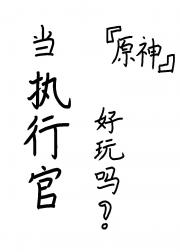 『原神』
当执行官
好玩吗？